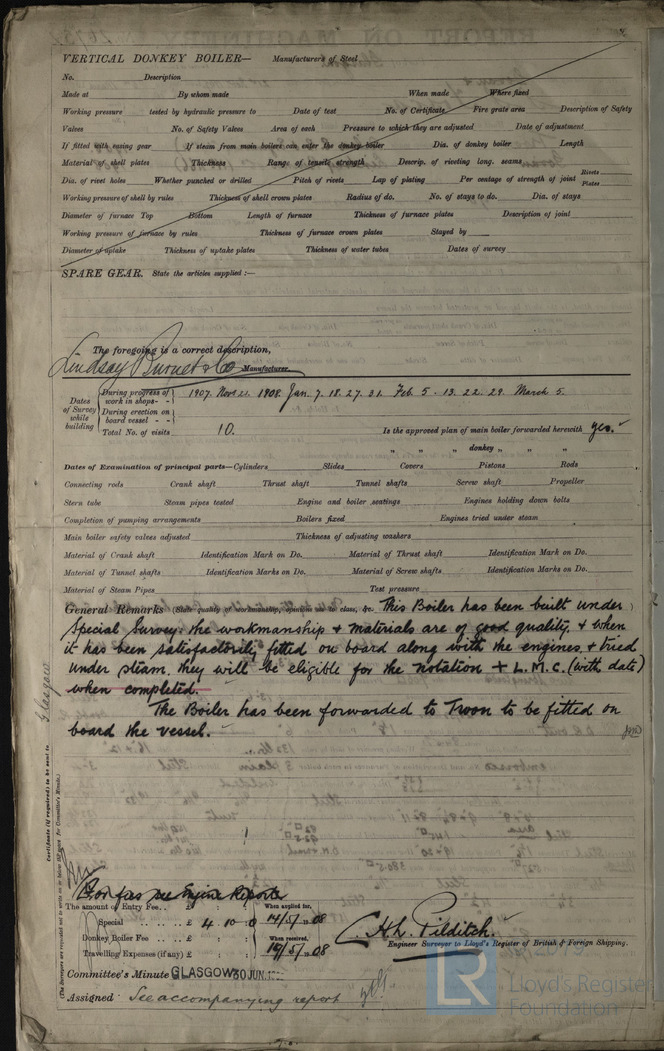 VERTICAL DONKEY BOILER— Manufacturers of Steel
No. Description
Made at By whom made When made Where fixed
Working pressure tested by hydraulic pressure to Date of test No. of Certificate Fire grate area Description of Safety
Valves No. of Safety Valves Area of each Pressure to which they are adjusted Date of adjustment
If fitted with easing gear If steam from main boilers can enter the donkey boiler Dia. of donkey boiler Length
Material of shell plates Thickness Range of tensile strength Descrip. of riveting long. seams
Dia. of rivet holes Whether punched or drilled Pitch of rivets Lap of plating Per centage of strength of joint Rivets Plates
Working pressure of shell by rules Thickness of shell crown plates Radius of do. No. of stays to do. Dia. of stays
Diameter of furnace Top Bottom Length of furnace Thickness of furnace plates Description of joint
Working pressure of furnace by rules Thickness of furnace crown plates Stayed by
Diameter of uptake Thickness of uptake plates Thickness of water tubes Dates of survey
SPARE GEAR. State the articles supplied :—
The foregoing is a correct description,
Lindsay Burnet & Co Manufacturer
Dates of Survey while building
During progress of work in shops - - 1907. Nov. 21. 1908. Jan. 7. 18. 27. 31. Feb. 5. 13. 22. 29. March 5.
During erection on board vessel - -
Total No. of visits 10. Is the approved plan of main boiler forwarded herewith yes.
" " " donkey " " "
Dates of Examination of principal parts—Cylinders Slides Covers Pistons Rods
Connecting rods Crank shaft Thrust shaft Tunnel shafts Screw shaft Propeller
Stern tube Steam pipes tested Engine and boiler seatings Engines holding down bolts
Completion of pumping arrangements Boilers fixed Engines tried under steam
Main boiler safety valves adjusted Thickness of adjusting washers
Material of Crank shaft Identification Mark on Do. Material of Thrust shaft Identification Mark on Do.
Material of Tunnel shafts Identification Marks on Do. Material of Screw shafts Identification Marks on Do.
Material of Steam Pipes Test pressure
General Remarks (State quality of workmanship, opinions as to class, &c. This Boiler has been built under
Special Survey: the workmanship & materials are of good quality, & when
it has been satisfactorily fitted on board along with the engines & tried
under steam, they will be eligible for the notation + L.M.C. (with date)
when completed.
The Boiler has been forwarded to Troon to be fitted on
board the vessel.
Certificate (if required) to be sent to Glasgow
(The Surveyors are requested not to write on or below the space for Committee's Minute.)
For fees see Engine Report
The amount of Entry Fee .. £ : : When applied for,
Special .. £ 4 . 10 . 0 14/5/08
Donkey Boiler Fee .. £ : : When received,
Travelling Expenses (if any) £ : : 19/5/08
C. H. L. Pilditch.
Engineer Surveyor to Lloyd's Register of British & Foreign Shipping.
Committee's Minute GLASGOW 30 JUN.
Assigned See accompanying report
LR
Lloyd's Register
Foundation